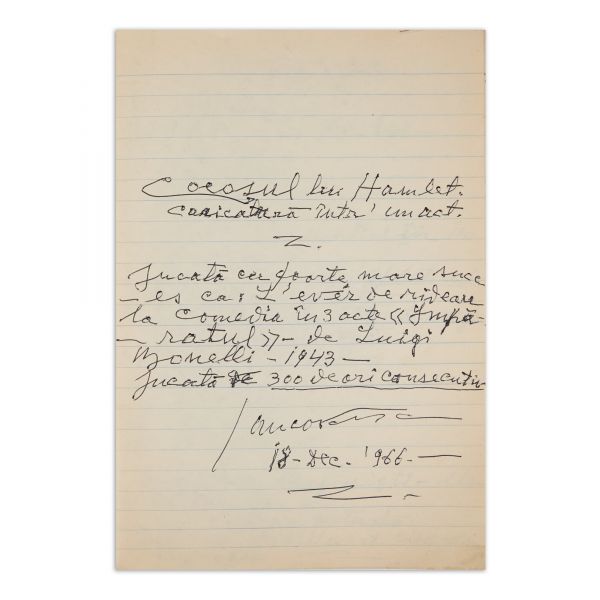 Cocoșul lui Hamlet.
caricatură într' un act.
Jucată cu foarte mare succ
-es ca: L'ever de rideau
la Comedia în 3 acte «Impă-
-ratul» - de Luigi
Bonelli - 1943 -
Jucată de 300 de ori consecutiv
18 - Dec. '966. -